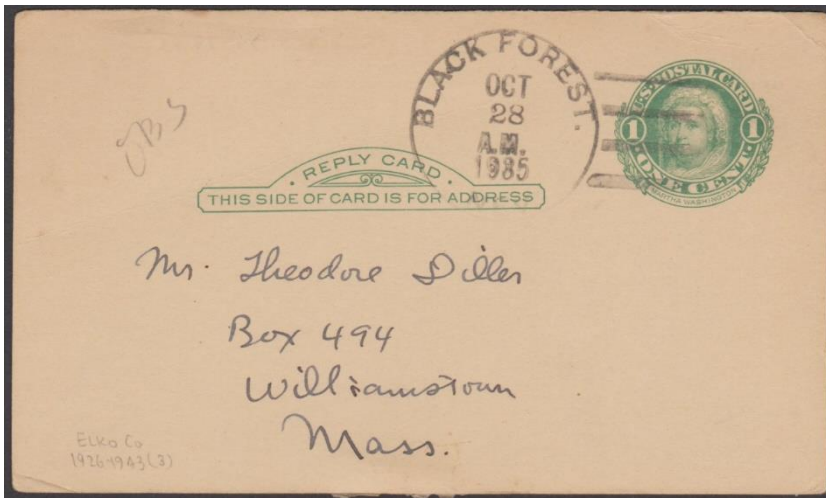 BLACK FOREST.
OCT
28
A.M.
1985
U.S. POSTAL CARD
1 1
·ONE CENT·
MARTHA WASHINGTON
·REPLY CARD·
THIS SIDE OF CARD IS FOR ADDRESS
Mr. Theodore Diller
Box 494
Williamstown
Mass.
ELKO Co
1926-1943 (3)